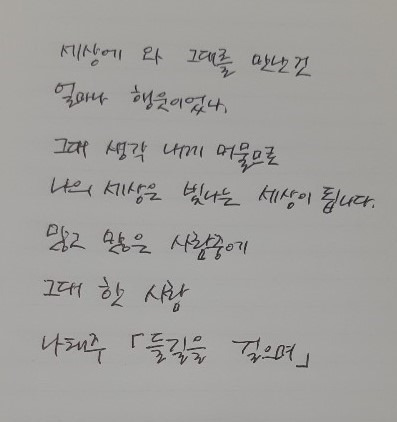 세상에 와 그대를 만난건
얼마나 행운이었나,
그대 생각 내게 머물므로
나의 세상은 빛나는 세상이 됩니다.
많고 많은 사람중에
그대 한 사람
나태주 「들길을 걸으며」